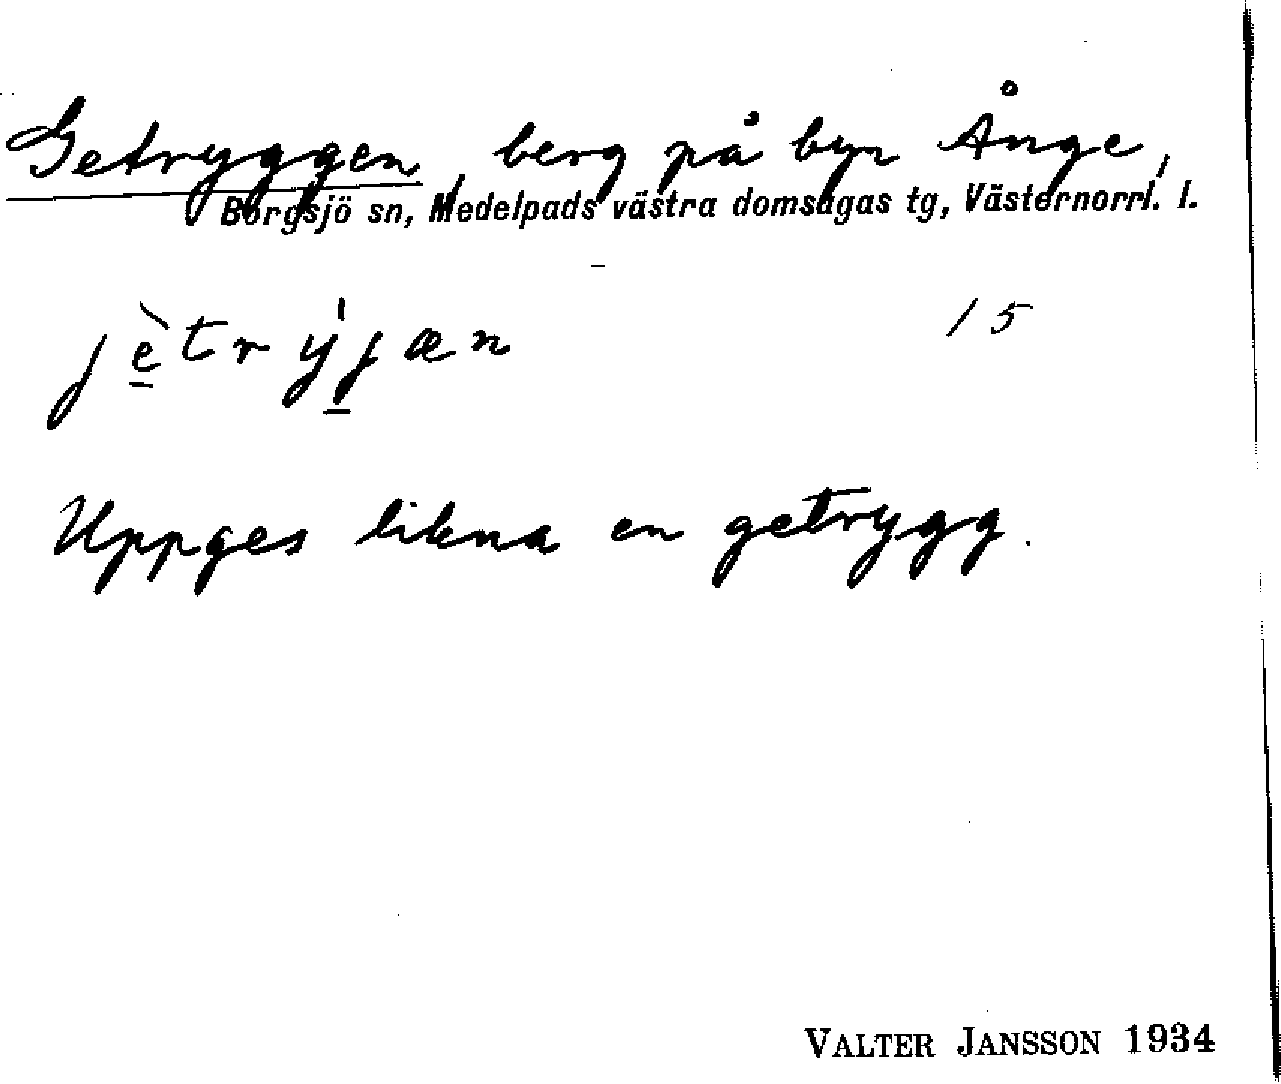 Getryggen, berg på byn Ånge,
Borgsjö sn, Medelpads västra domsagas tg, Västernorrl. l.
jè̠trýɟ̠æn 15
Uppges likna en getrygg.
VALTER JANSSON 1934